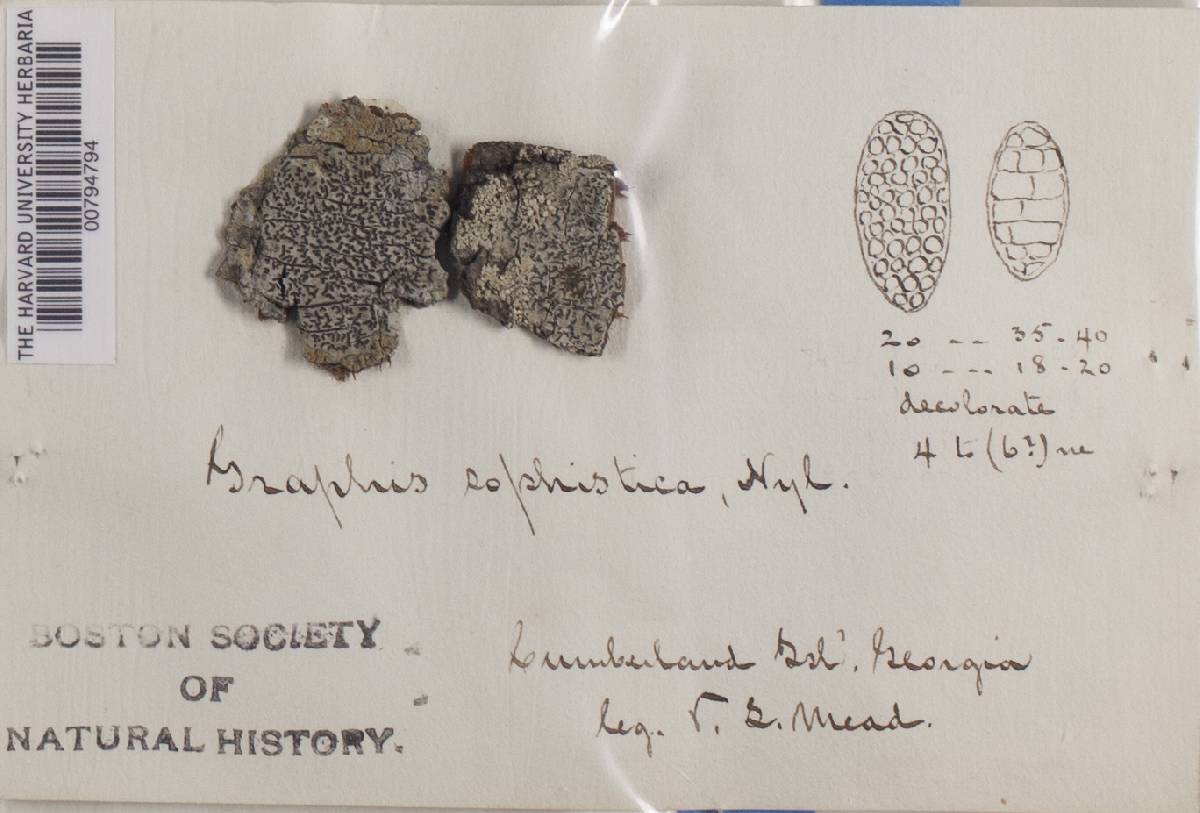 THE HARVARD UNIVERSITY HERBARIA
00794794
20 -- 35-40
10 --- 18-20
decolorate
4 to (6?) ne
Graphis sophistica, Nyl.
BOSTON SOCIETY
OF
NATURAL HISTORY.
Cumberland Isl'. Georgia
leg. T. L. Mead.